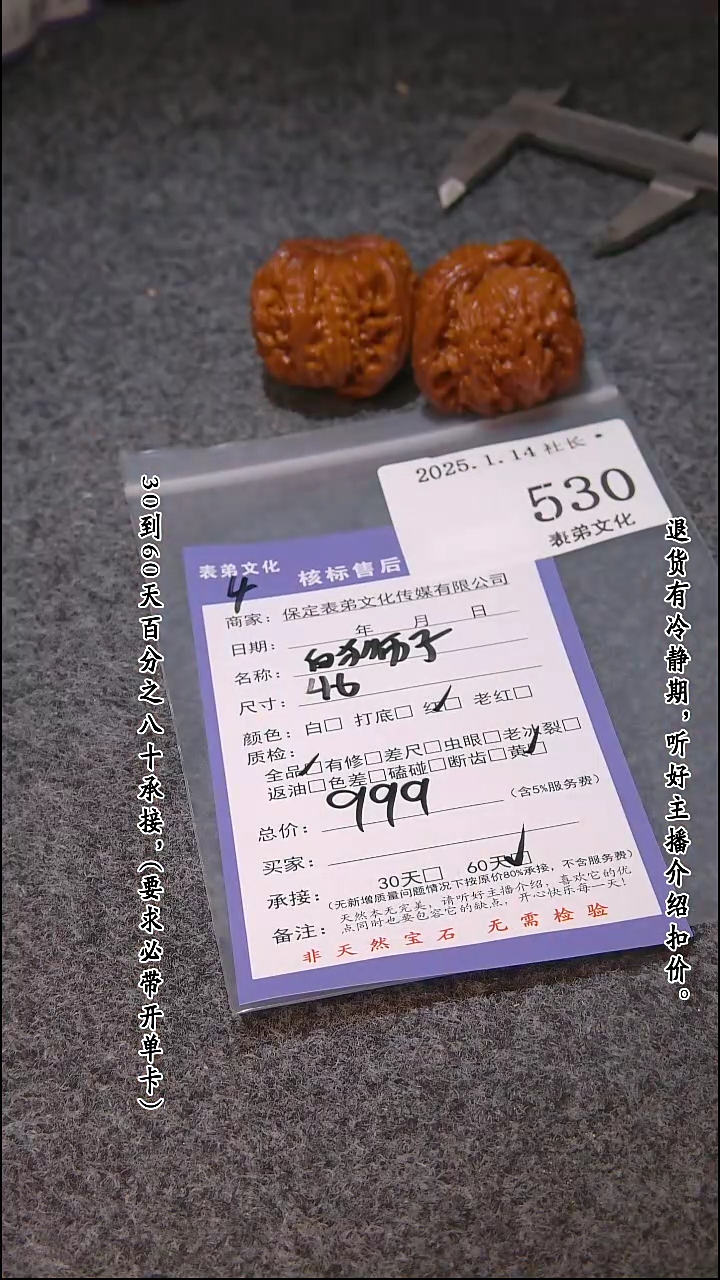 2025.1.14 社长
530
表弟文化
表弟文化 核标售后
4
商家: 保定表弟文化传媒有限公司
日期: 年 月 日
名称: 白狮子
尺寸: 46
颜色: 白□ 打底□ 红□ 老红□
质检:
全品□有修□差尺□虫眼□老冰裂□
返油□色差□磕碰□断齿□黄□
总价: 999 (含5%服务费)
买家:
承接: 30天□ 60天□
(无新增质量问题情况下按原价80%承接,不含服务费)
备注: 天然木无完美,请听好主播介绍,喜欢它的优
点同时也要包容它的缺点,开心快乐每一天!
非天然宝石 无需检验
30到60天百分之八十承接,(要求必带开单卡)
退货有冷静期,听好主播介绍扣价。